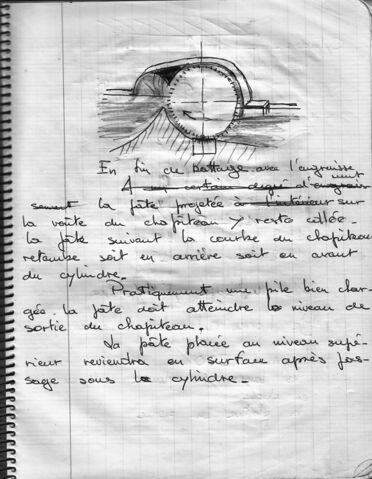 En fin de battage avec l'engraissement
A un certain degré d'engrais
la pâte projetée à l'intérieur sur
la voûte du chapiteau y reste collée.
la pâte suivant la courbe du chapiteau
retombe soit en arrière soit en avant
du cylindre.
Pratiquement une pile bien char-
gée. la pâte doit atteindre le niveau de
sortie du chapiteau.
La pâte placée au niveau supé-
rieur reviendra en surface après pas-
sage sous le cylindre.